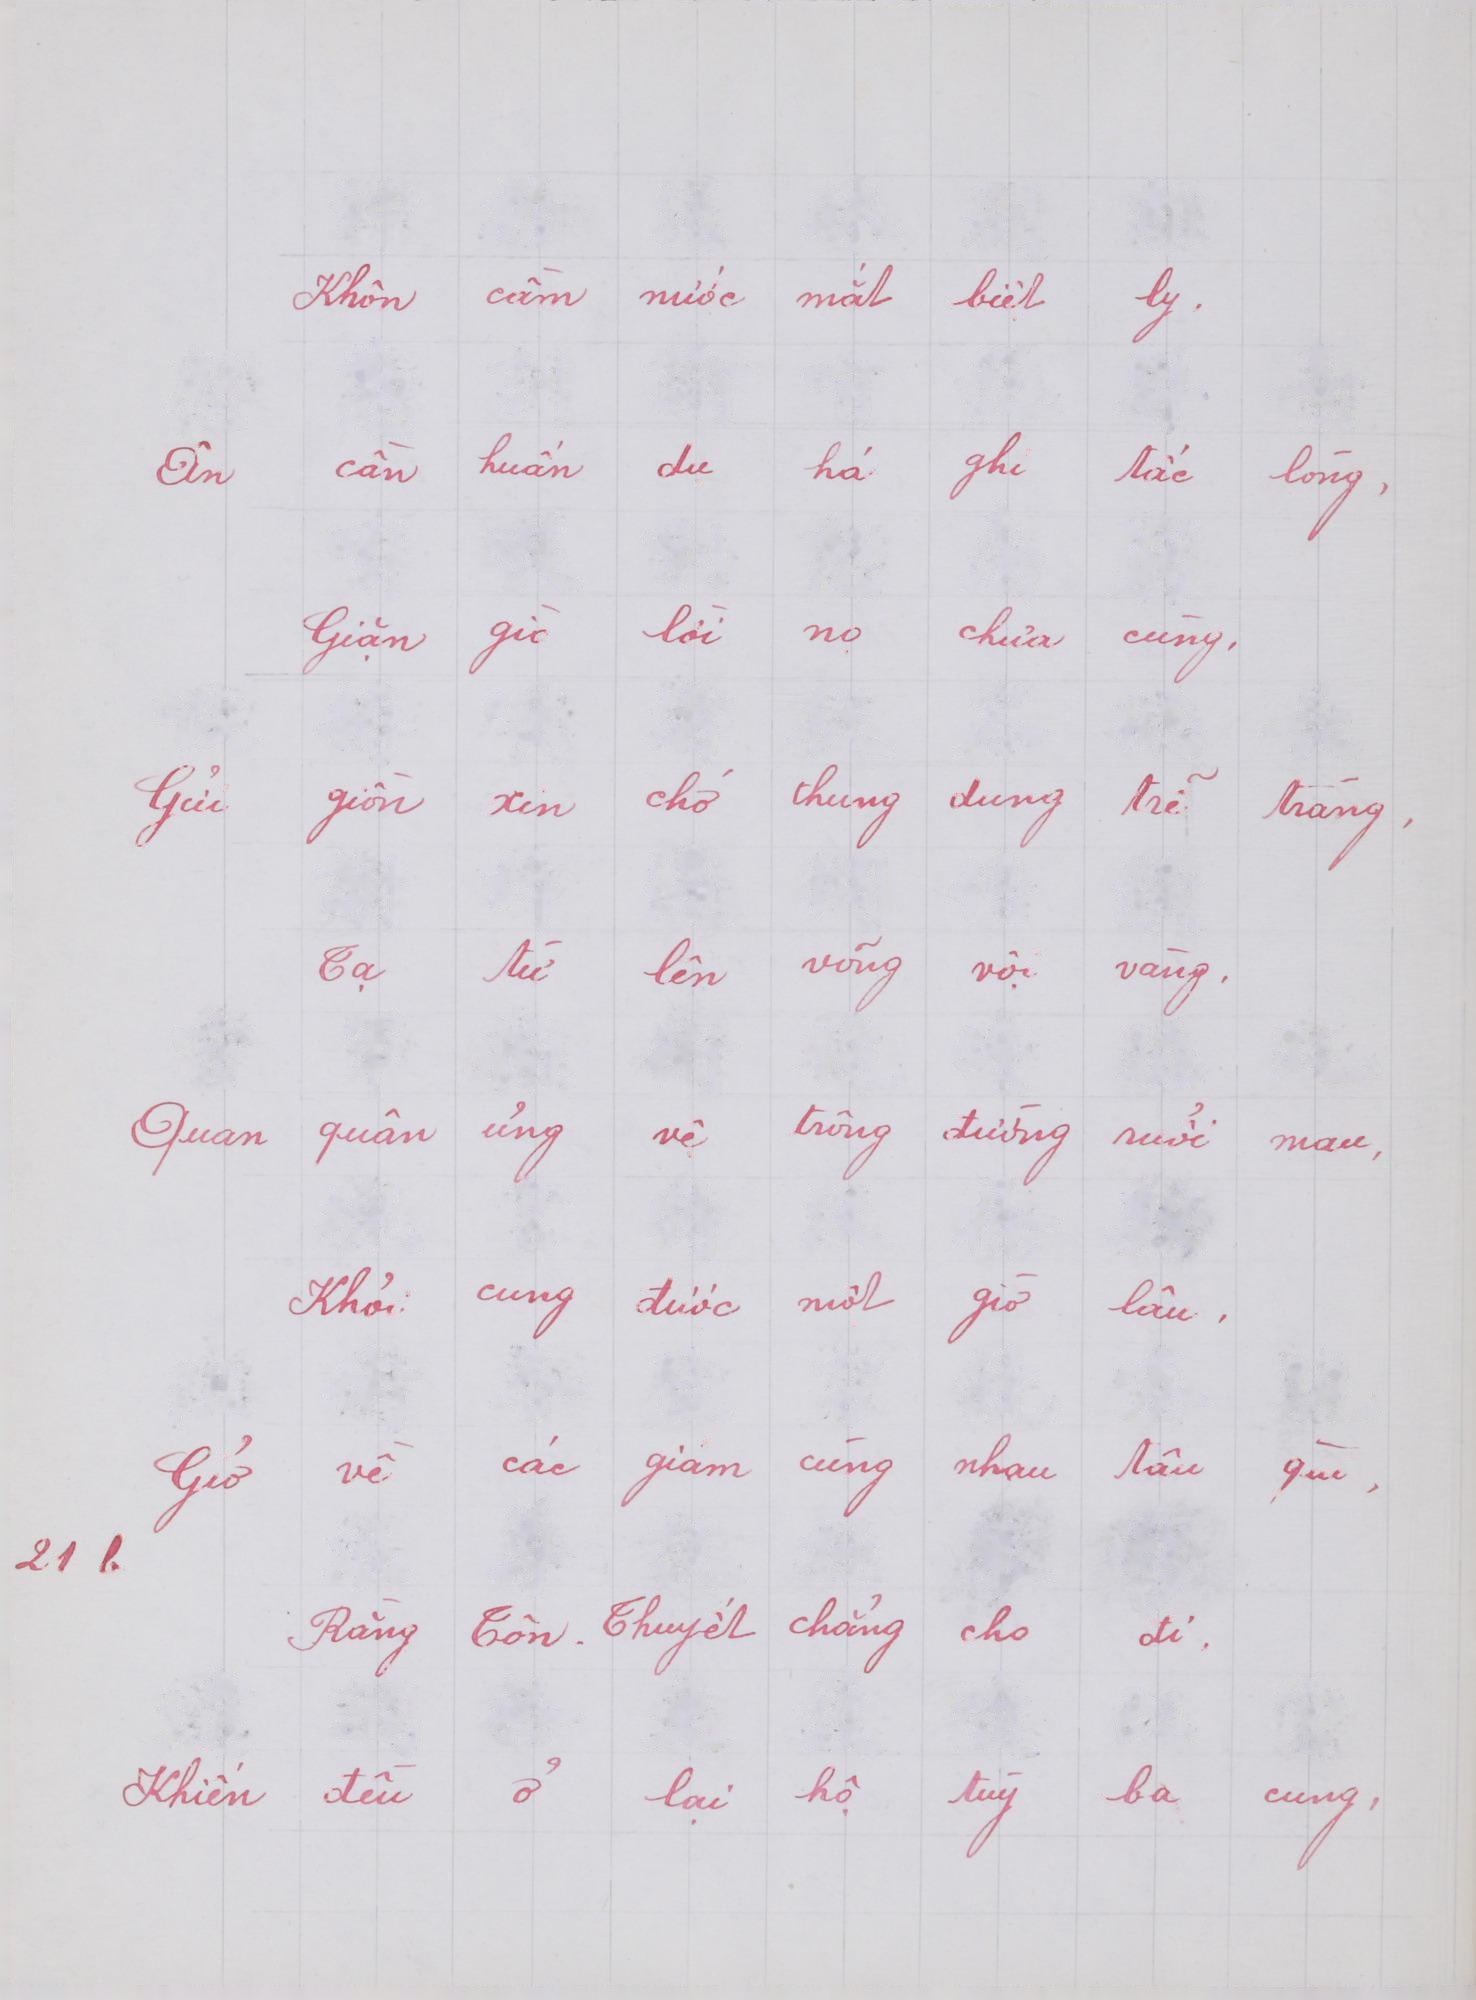 Khôn cầm nước mắt biệt ly.
Ân cần huấn dụ há ghi tấc lòng,
Giặn giò lời nọ chửa cùng.
Gửi giồn xin chớ thung dung trễ tràng,
Tạ từ lên võng vội vàng.
Quan quân ủng vệ trông đường ruổi mau,
Khỏi cung được một giờ lâu.
Giở về các giám cùng nhau tâu qùi,
21 l.
Rằng Tôn-Thuyết chẳng cho đi.
Khiến đều ở lại hộ tuỳ ba cung,